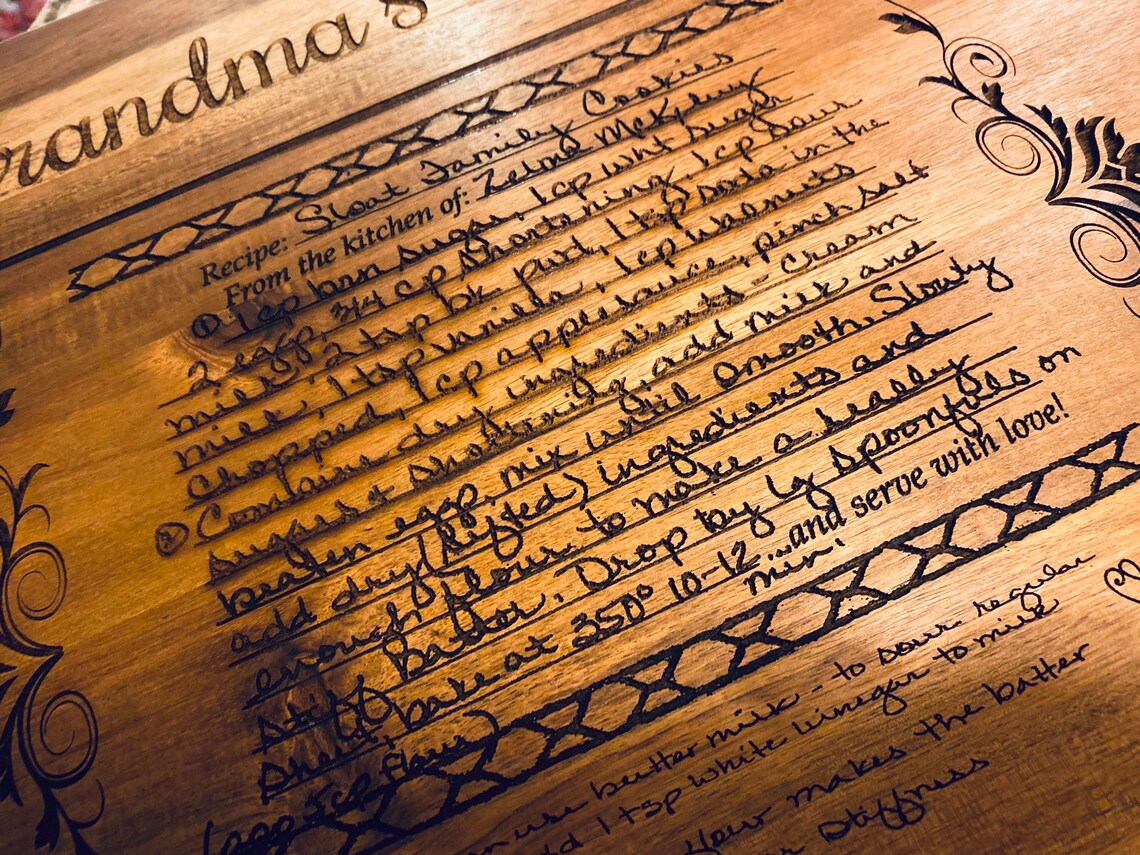 randma's
Recipe: Sloat Family Cookies
From the kitchen of: Zelma McKplvey
① 1 cp brn sugar, 1 cp wht sugar
2 eggs, 3/4 cp shortening, 1 cp sour
milk, 2 tsp bk. pwd, 1 tsp soda in the
milk, 1 tsp vanilla, 1 cp walnuts
chopped, 1 cp applesauce, pinch salt
② Combine dry ingredients - cream
sugars & shortening, add milk and
beaten eggs, mix until smooth. Slowly
add dry (sifted) ingredients and
enough flour to make a really
stiff batter. Drop by lg spoonfuls on
sheet, bake at 350° 10-12 min.
...and serve with love!
(app 5 cp flour)
use butter milk - to sour regular
add 1 tsp white vinegar to milk
flour makes the batter
stiffness